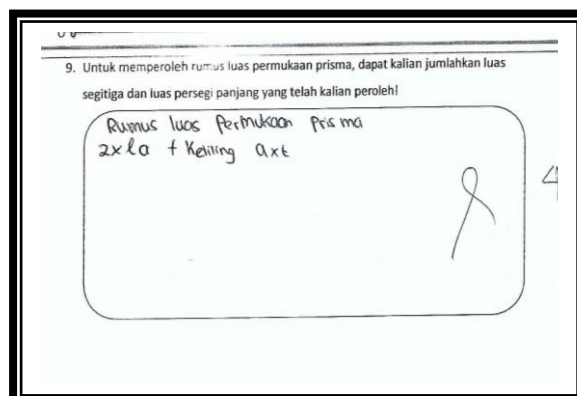 9. Untuk memperoleh rumus luas permukaan prisma, dapat kalian jumlahkan luas
segitiga dan luas persegi panjang yang telah kalian peroleh!
Rumus luas Permukaan Prisma
2x la + Keliling axt